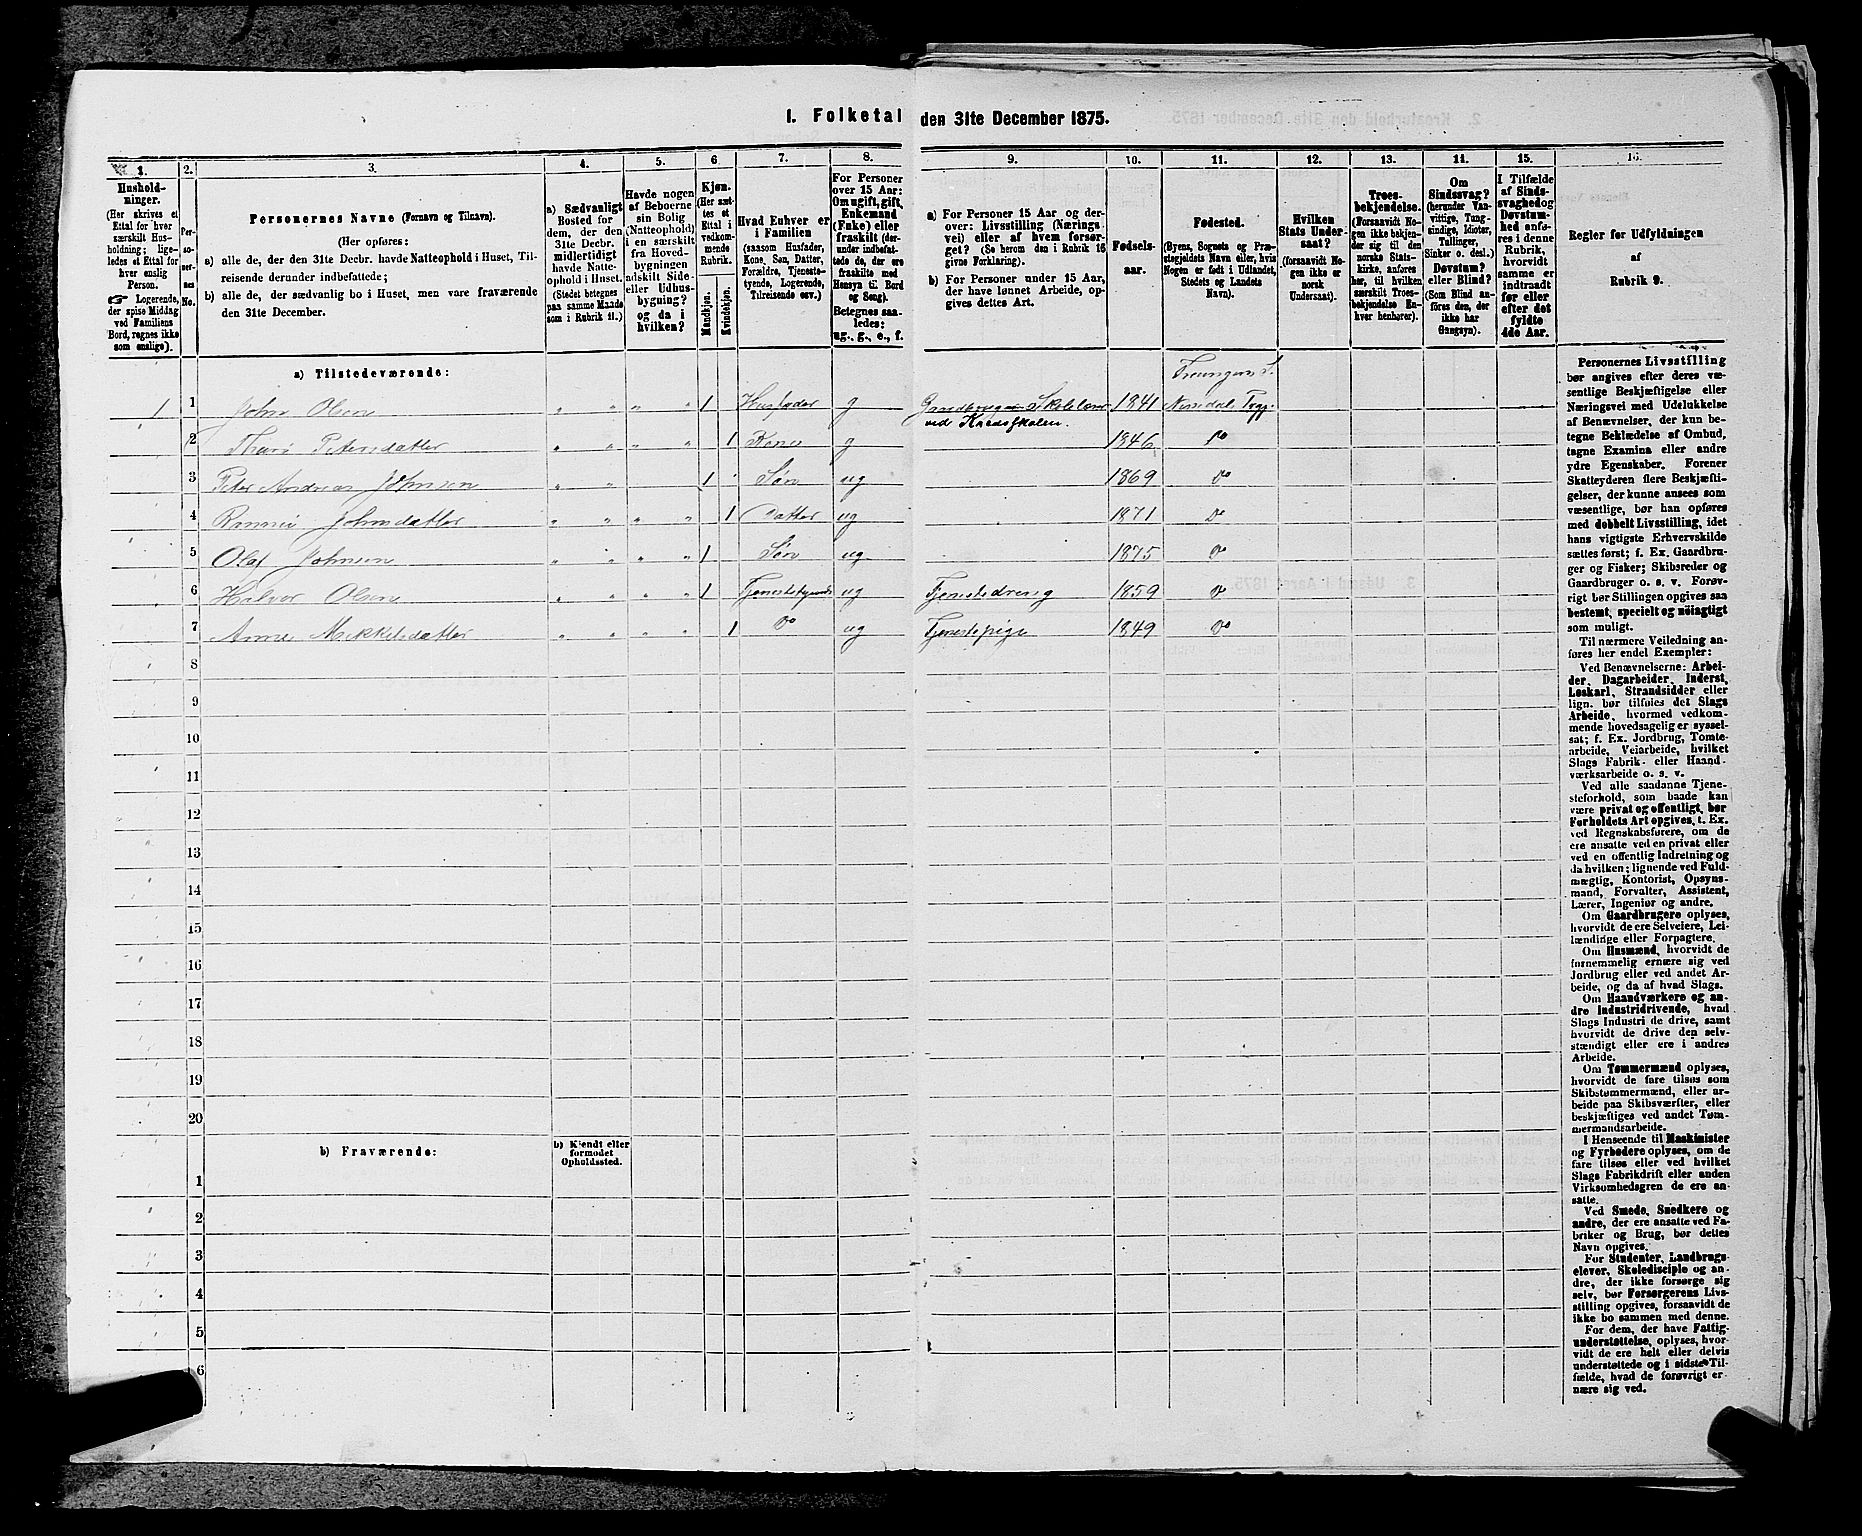 I. Folketal den 31te December 1875.
1. 2. 3. 4. 5. 6. 7. 8. 9. 10. 11. 12. 13. 14. 15. 16.
Hushold-
ninger.
(Her skrives et
Ettal for hver
særskilt Hus-
holdning; lige-
ledes et Ettal for
hver enslig
Person.
☞ Logerende,
der spise Middag
ved Familiens
Bord, regnes ikke
som enslige).
Per-
so-
ner-
nes
No.
Personernes Navne (Fornavn og Tilnavn).
(Her opføres:
a) alle de, der den 31te Decbr. havde Natteophold i Huset, Til-
reisende derunder indbefattede;
b) alle de, der sædvanlig bo i Huset, men vare fraværende
den 31te December.
a) Sædvanligt
Bosted for
dem, der den
31te Decbr.
midlertidigt
havde Natte-
ophold i Huset.
(Stedet betegnes
paa samme Maade
som i Rubrik 11.)
Havde nogen
af Beboerne
sin Bolig
(Natteophold)
i en særskilt
fra Hoved-
bygningen
adskilt Side-
eller Udhus-
bygning?
og da i
hvilken?
Kjøn.
(Her sæt-
tes et
Ettal i
vedkom-
mende
Rubrik.
Mandkjøn.
Kvindekjøn.
Hvad Enhver er
i Familien
(saasom Husfader,
Kone, Søn, Datter,
Forældre, Tjeneste-
tyende, Logerende,
Tilreisende osv.)
For Personer
over 15 Aar:
Om ugift, gift,
Enkemand
(Enke) eller
fraskilt (der-
under indbefat-
tede de, der ere
fraskilte med
Hensyn til Bord
og Seng).
Betegnes saa-
ledes:
ug., g., e., f.
a) For Personer 15 Aar og der-
over: Livsstilling (Nærings-
vei) eller af hvem forsør-
get? (Se herom den i Rubrik 16
givne Forklaring).
b) For Personer under 15 Aar,
der have lønnet Arbeide, op-
gives dettes Art.
Fødsels-
aar.
Fødested.
(Byens, Sognets og Præ-
stegjeldets Navn eller, hvis
Nogen er født i Udlandet,
Stedets og Landets
Navn).
Hvilken
Stats Under-
saat?
(forsaavidt No-
gen ikke er
norsk
Undersaat).
Troes-
bekjendelse.
(Forsaavidt No-
gen ikke bekjen-
der sig til den
norske Stats-
kirke, anføres
her, til hvilken
særskilt Troes-
bekjendelse En-
hver henhører).
Om
Sindssvag?
(herunder Van-
vittige, Tung-
sindige, Idioter,
Tullinger,
Sinker o. desl.)
Døvstum?
eller Blind?
(Som Blind an-
føres den, der
ikke har
Gangsyn).
I Tilfælde
af Sinds-
svaghed og
Døvstum-
hed anfø-
res i denne
Rubrik,
hvorvidt
samme er
indtraadt
før eller
efter det
fyldte
4de Aar.
Regler for Udfyldningen
af
Rubrik 9.
a) Tilstedeværende:
1 1 John Olsen 1 Husfader g Gaardbruger Skolelærer 1841 Nissedal Prgj.
ved Kredsskolen.
2 Petersdatter 1 Kone g 1846 Do
3 Peter Andreas Johnsen 1 Søn ug 1869 Do
4 Johnsdatter 1 Datter ug 1871 Do
5 Olaf Johnsen 1 Søn ug 1875 Do
6 Halvor Olsen 1 Tjenestetyende ug Tjenestedreng 1859 Do
7 Anne Mikkelsdatter 1 Do ug Tjenestepige 1849 Do
8
9
10
11
12
13
14
15
16
17
18
19
20
b) Fraværende:
b) Kjendt eller
formodet
Opholdssted.
1
2
3
4
5
6
Personernes Livsstilling
bør angives efter deres væ-
sentlige Beskjæftigelse eller
Næringsvei med Udelukkelse
af Benævnelser, der kun be-
tegne Beklædelse af Ombud,
tagne Examina eller andre
ydre Egenskaber. Forener
Skatteyderen flere Beskjæfti-
gelser, der kunne ansees som
væsentlige, bør han opføres
med dobbelt Livsstilling, idet
hans vigtigste Erhvervskilde
sættes først; f. Ex. Gaardbru-
ger og Fisker; Skibsreder og
Gaardbruger o. s. v. Forøv-
rigt bør Stillingen opgives saa
bestemt, specielt og nøiagtigt
som muligt.
Til nærmere Veiledning an-
føres her endel Exempler:
Ved Benævnelserne: Arbei-
der, Dagarbeider, Inderst,
Løskarl, Strandsidder eller
lign. bør tilføies det Slags
Arbeide, hvormed vedkom-
mende hovedsagelig er syssel-
sat; f. Ex. Jordbrug, Tomte-
arbeide, Veiarbeide, hvilket
Slags Fabrik- eller Haand-
værksarbeide o. s. v.
Ved alle saadanne Tjene-
steforhold, som baade kan
være privat og offentligt, bør
Forholdets Art opgives, t. Ex.
ved Regnskabsførere, om de
ere ansatte ved en privat eller
ved en offentlig Indretning og
da hvilken; lignende ved Fuld-
mægtig, Kontorist, Opsyns-
mand, Forvalter, Assistent,
Lærer, Ingeniør og andre.
Om Gaardbrugere oplyses,
hvorvidt de ere Selveiere, Lei-
lændinge eller Forpagtere.
Om Husmænd, hvorvidt de
fornemmelig ernære sig ved
Jordbrug eller ved andet Ar-
beide, og da af hvad Slags.
Om Haandværkere og an-
dre Industridrivende, hvad
Slags Industri de drive, samt
hvorvidt de drive den selv-
stændigt eller ere i andres
Arbeide.
Om Tømmermænd oplyses,
hvorvidt de fare tilsøs som
Skibstømmermænd, eller ar-
beide paa Skibsværfter, eller
beskjæftiges ved andet Tøm-
mermandsarbeide.
I Henseende til Maskinister
og Fyrbødere oplyses, om de
fare tilsøs eller ved hvilket
Slags Fabrikdrift eller anden
Virksomhedsgren de ere an-
satte.
Ved Smede, Snedkere og
andre, der ere ansatte ved Fa-
briker og Brug, bør dettes
Navn opgives.
For Studenter, Landbrugs-
elever, Skoledisciple og an-
dre, der ikke forsørge sig
selv, bør Forsørgerens Livs-
stilling opgives, forsaavidt de
ikke bo sammen med denne.
For dem, der have Fattig-
understøttelse, oplyses, hvor-
vidt de ere helt eller delvis
understøttede og i sidste Til-
fælde, hvad de forøvrigt er-
nære sig ved.